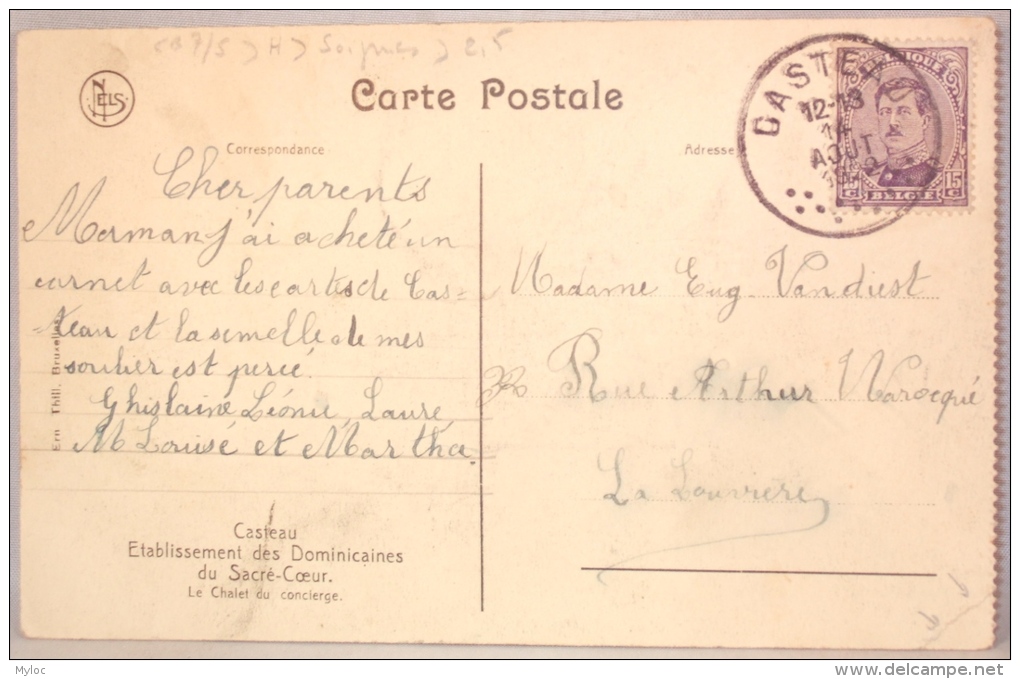 NELS
Carte Postale
Correspondance
Adresse
CASTEAU
12-13
14
AOUT
BELGIQUE
15 C BELGIE 15 C
Cher parents
Maman j'ai acheté un
carnet avec les cartes de Cas-
teau et la semelle de mes
soulier est percé.
Ghislaine Léonie Laure
M Louise et Martha
Madame Eug. Vandiest
Rue Arthur Warocqué
La Louvière
Ern Thill, Bruxelles
Casteau
Etablissement des Dominicaines
du Sacré-Cœur.
Le Chalet du concierge.
Myloc
delcampe.net